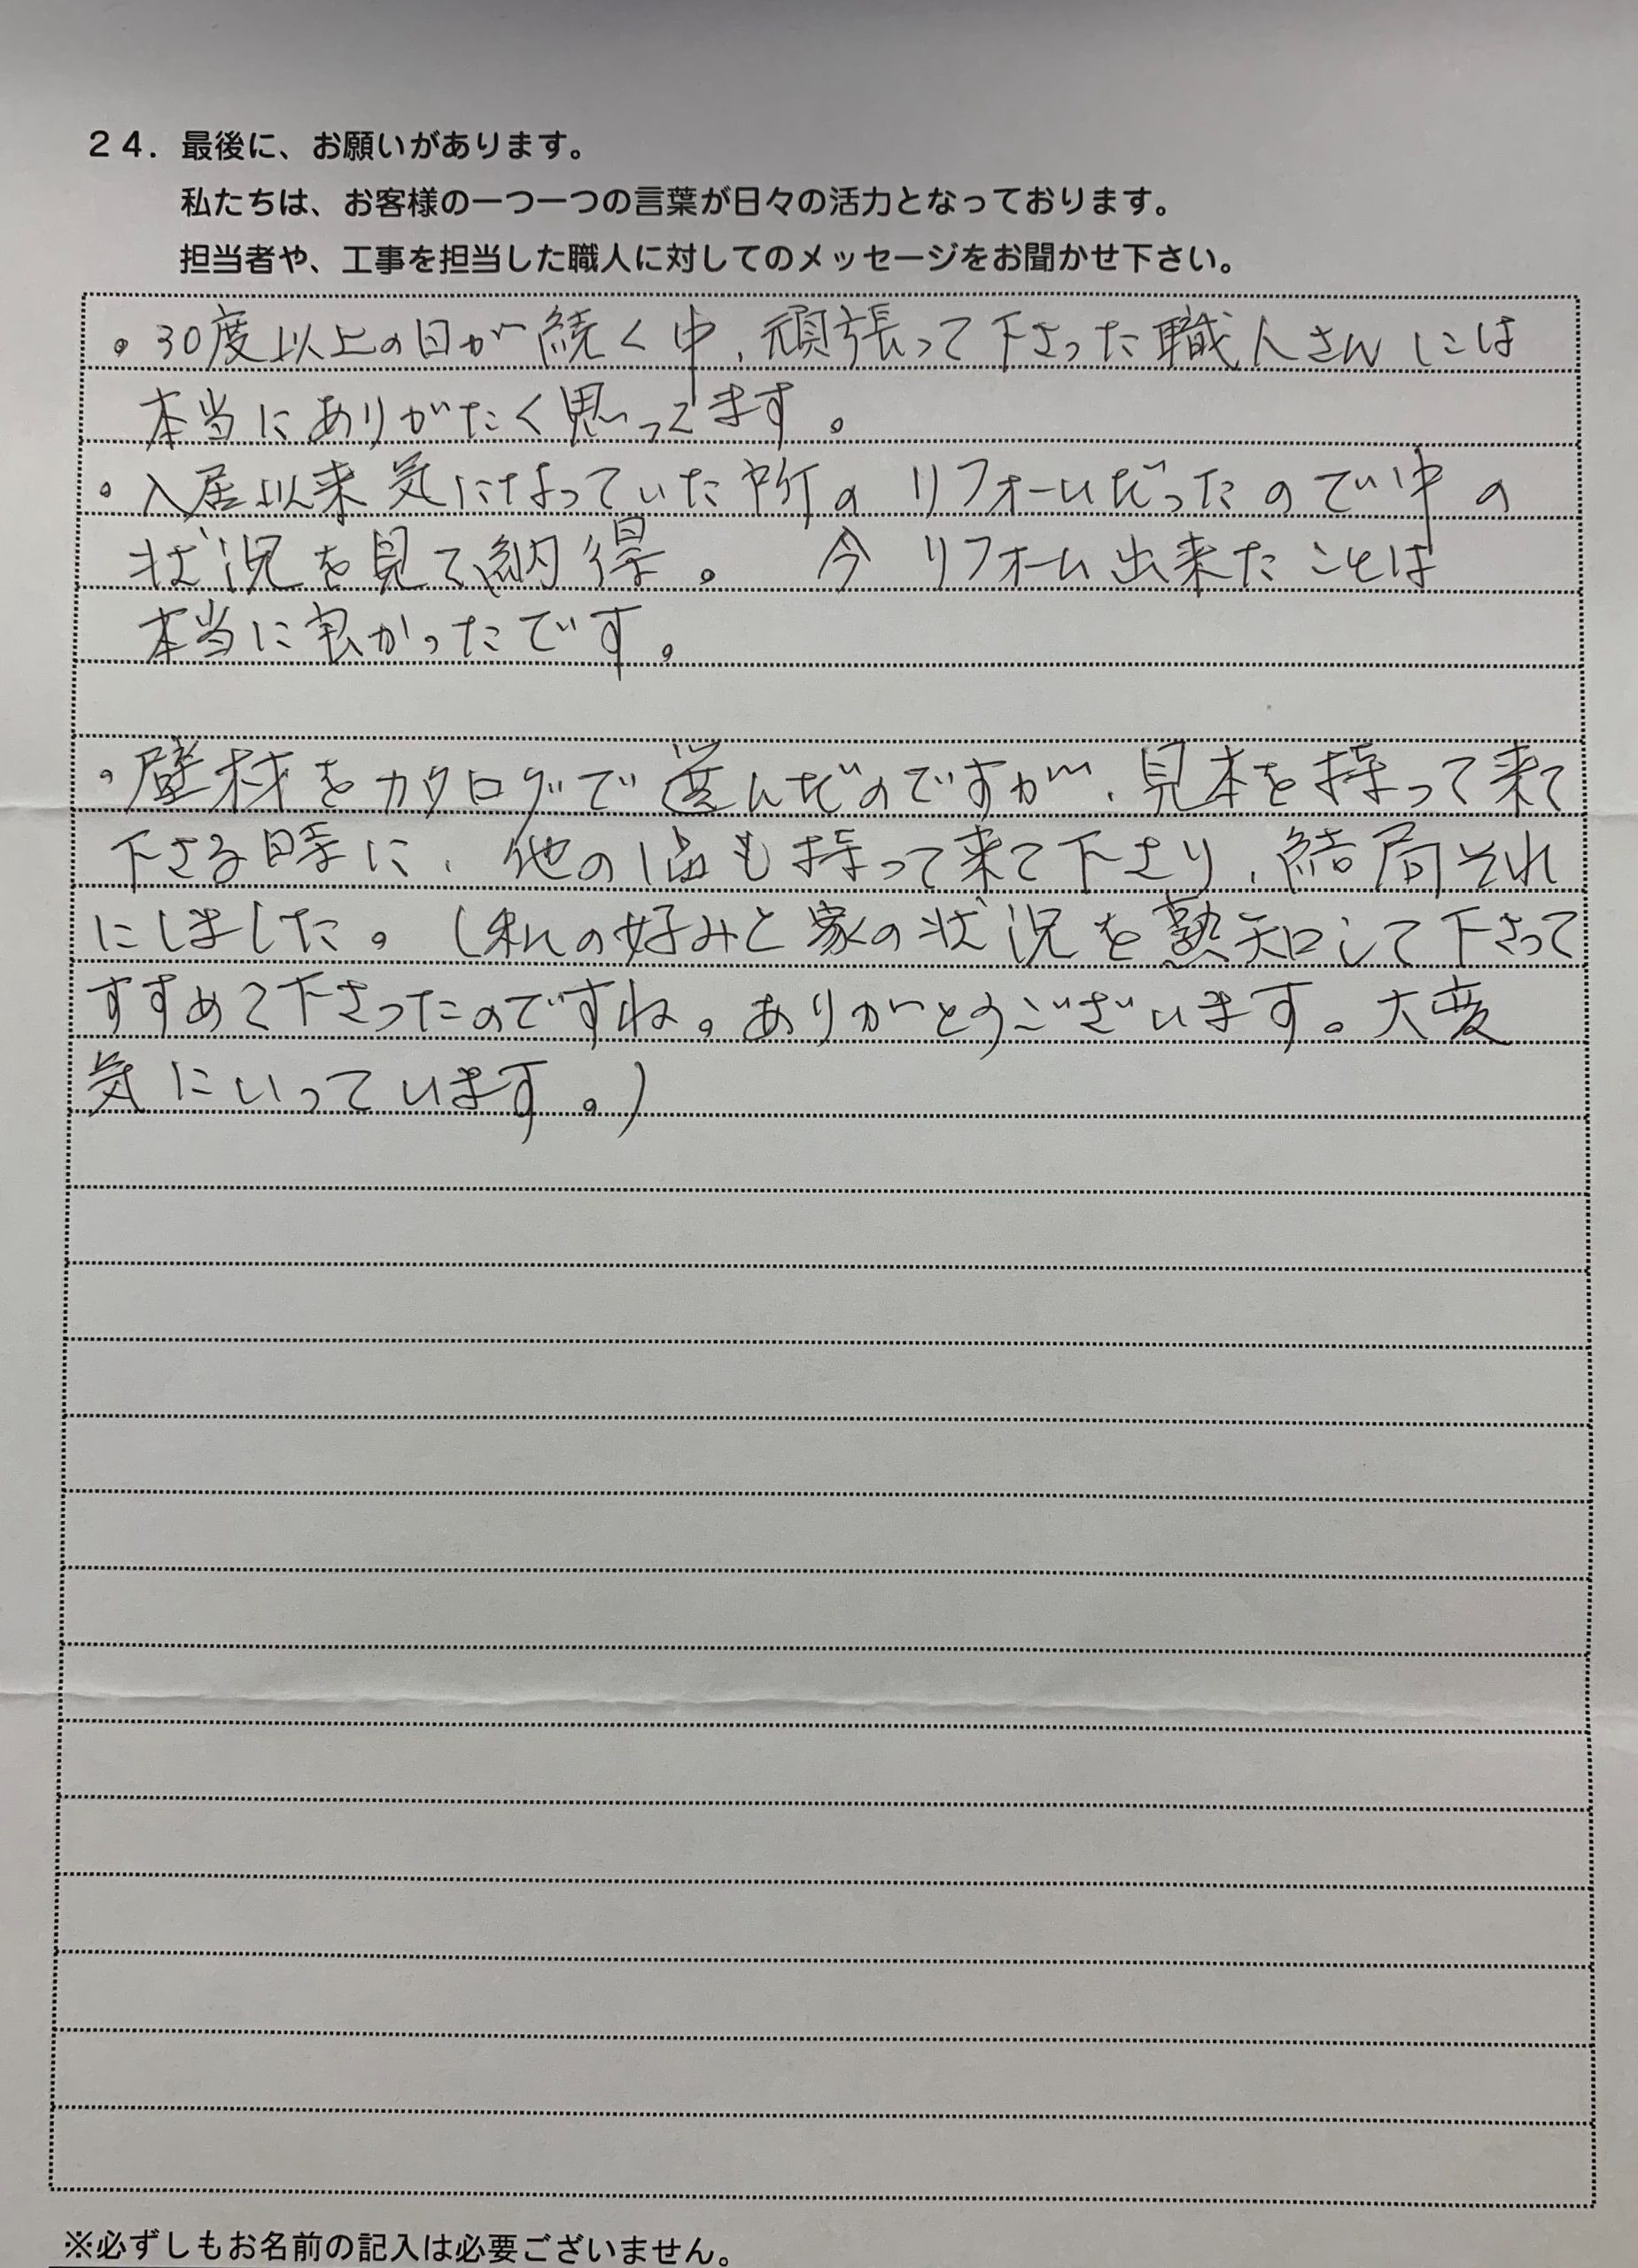 24. 最後に、お願いがあります。
私たちは、お客様の一つ一つの言葉が日々の活力となっております。
担当者や、工事を担当した職人に対してのメッセージをお聞かせ下さい。
。30度以上の日が続く中、頑張って下さった職人さんには
本当にありがたく思ってます。
。入居以来気になっていた所のリフォームだったので中の
状況を見て納得。 今リフォーム出来たことは
本当に良かったです。
。壁材をカタログで選んだのですが、見本を持って来て
下さる時に、他の1点も持って来て下さり、結局それ
にしました。(私の好みと家の状況を熟知して下さって
すすめて下さったのですね。ありがとうございます。大変
気にいっています。)
※必ずしもお名前の記入は必要ございません。